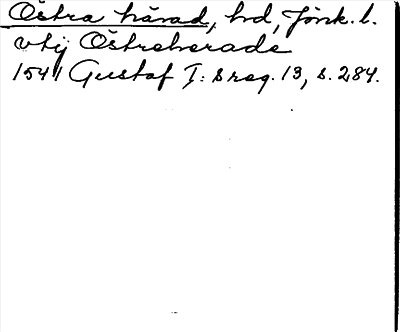 Östra härad, hd, Jönk. l.
vtij Östreherade
1541 Gustaf I:s reg. 13, s. 284.